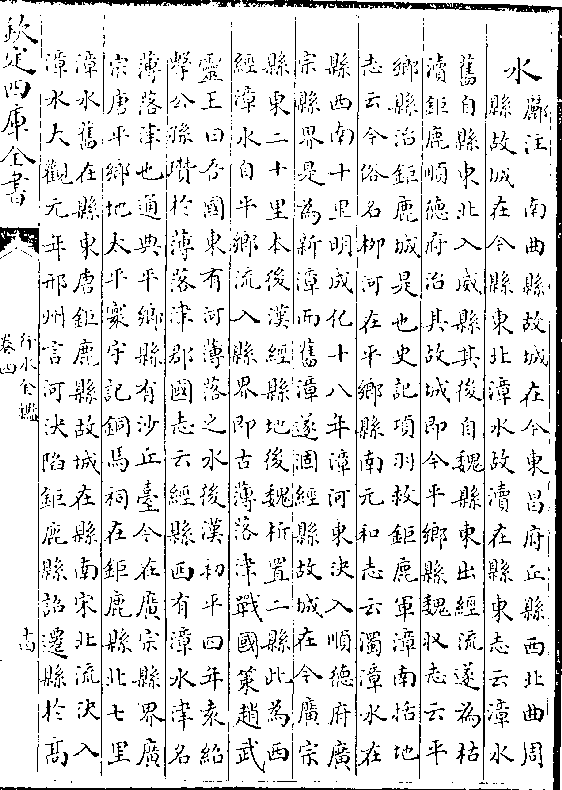 水
酈注　南曲縣故城在今東昌府丘縣西北曲周
縣故城在今縣東北漳水故瀆在縣東志云漳水
舊自縣東北入威縣其後自魏縣東出經流遂為枯
瀆鉅鹿順德府治其故城即今平鄉縣魏収志云平
鄉縣治鉅鹿城是也史記項羽救鉅鹿軍漳南括地
志云今俗名柳河在平鄉縣南元和志云濁漳水在
縣西南十里明成化十八年漳河東決入順德府廣
宗縣界是為新漳而舊漳遂涸經縣故城在今廣宗
縣東二十里本後漢經縣地後魏析置二縣此為西
經漳水自平鄉流入縣界即古薄落津戰國策趙武
靈王曰吾國東有河薄落之水後漢初平四年袁紹
擊公孫瓚於薄落津郡國志云經縣西有漳水津名
薄落津也通典平鄉縣有沙丘臺今在廣宗縣界廣
宗唐平鄉地太平寰宇記銅馬祠在鉅鹿縣北七里
漳水舊在縣東唐鉅鹿縣故城在縣南宋北流決入
漳水大觀元年邢州言河決陷鉅鹿縣詔遷縣於髙
欽定四庫全書
行水金鑑
卷四
十四